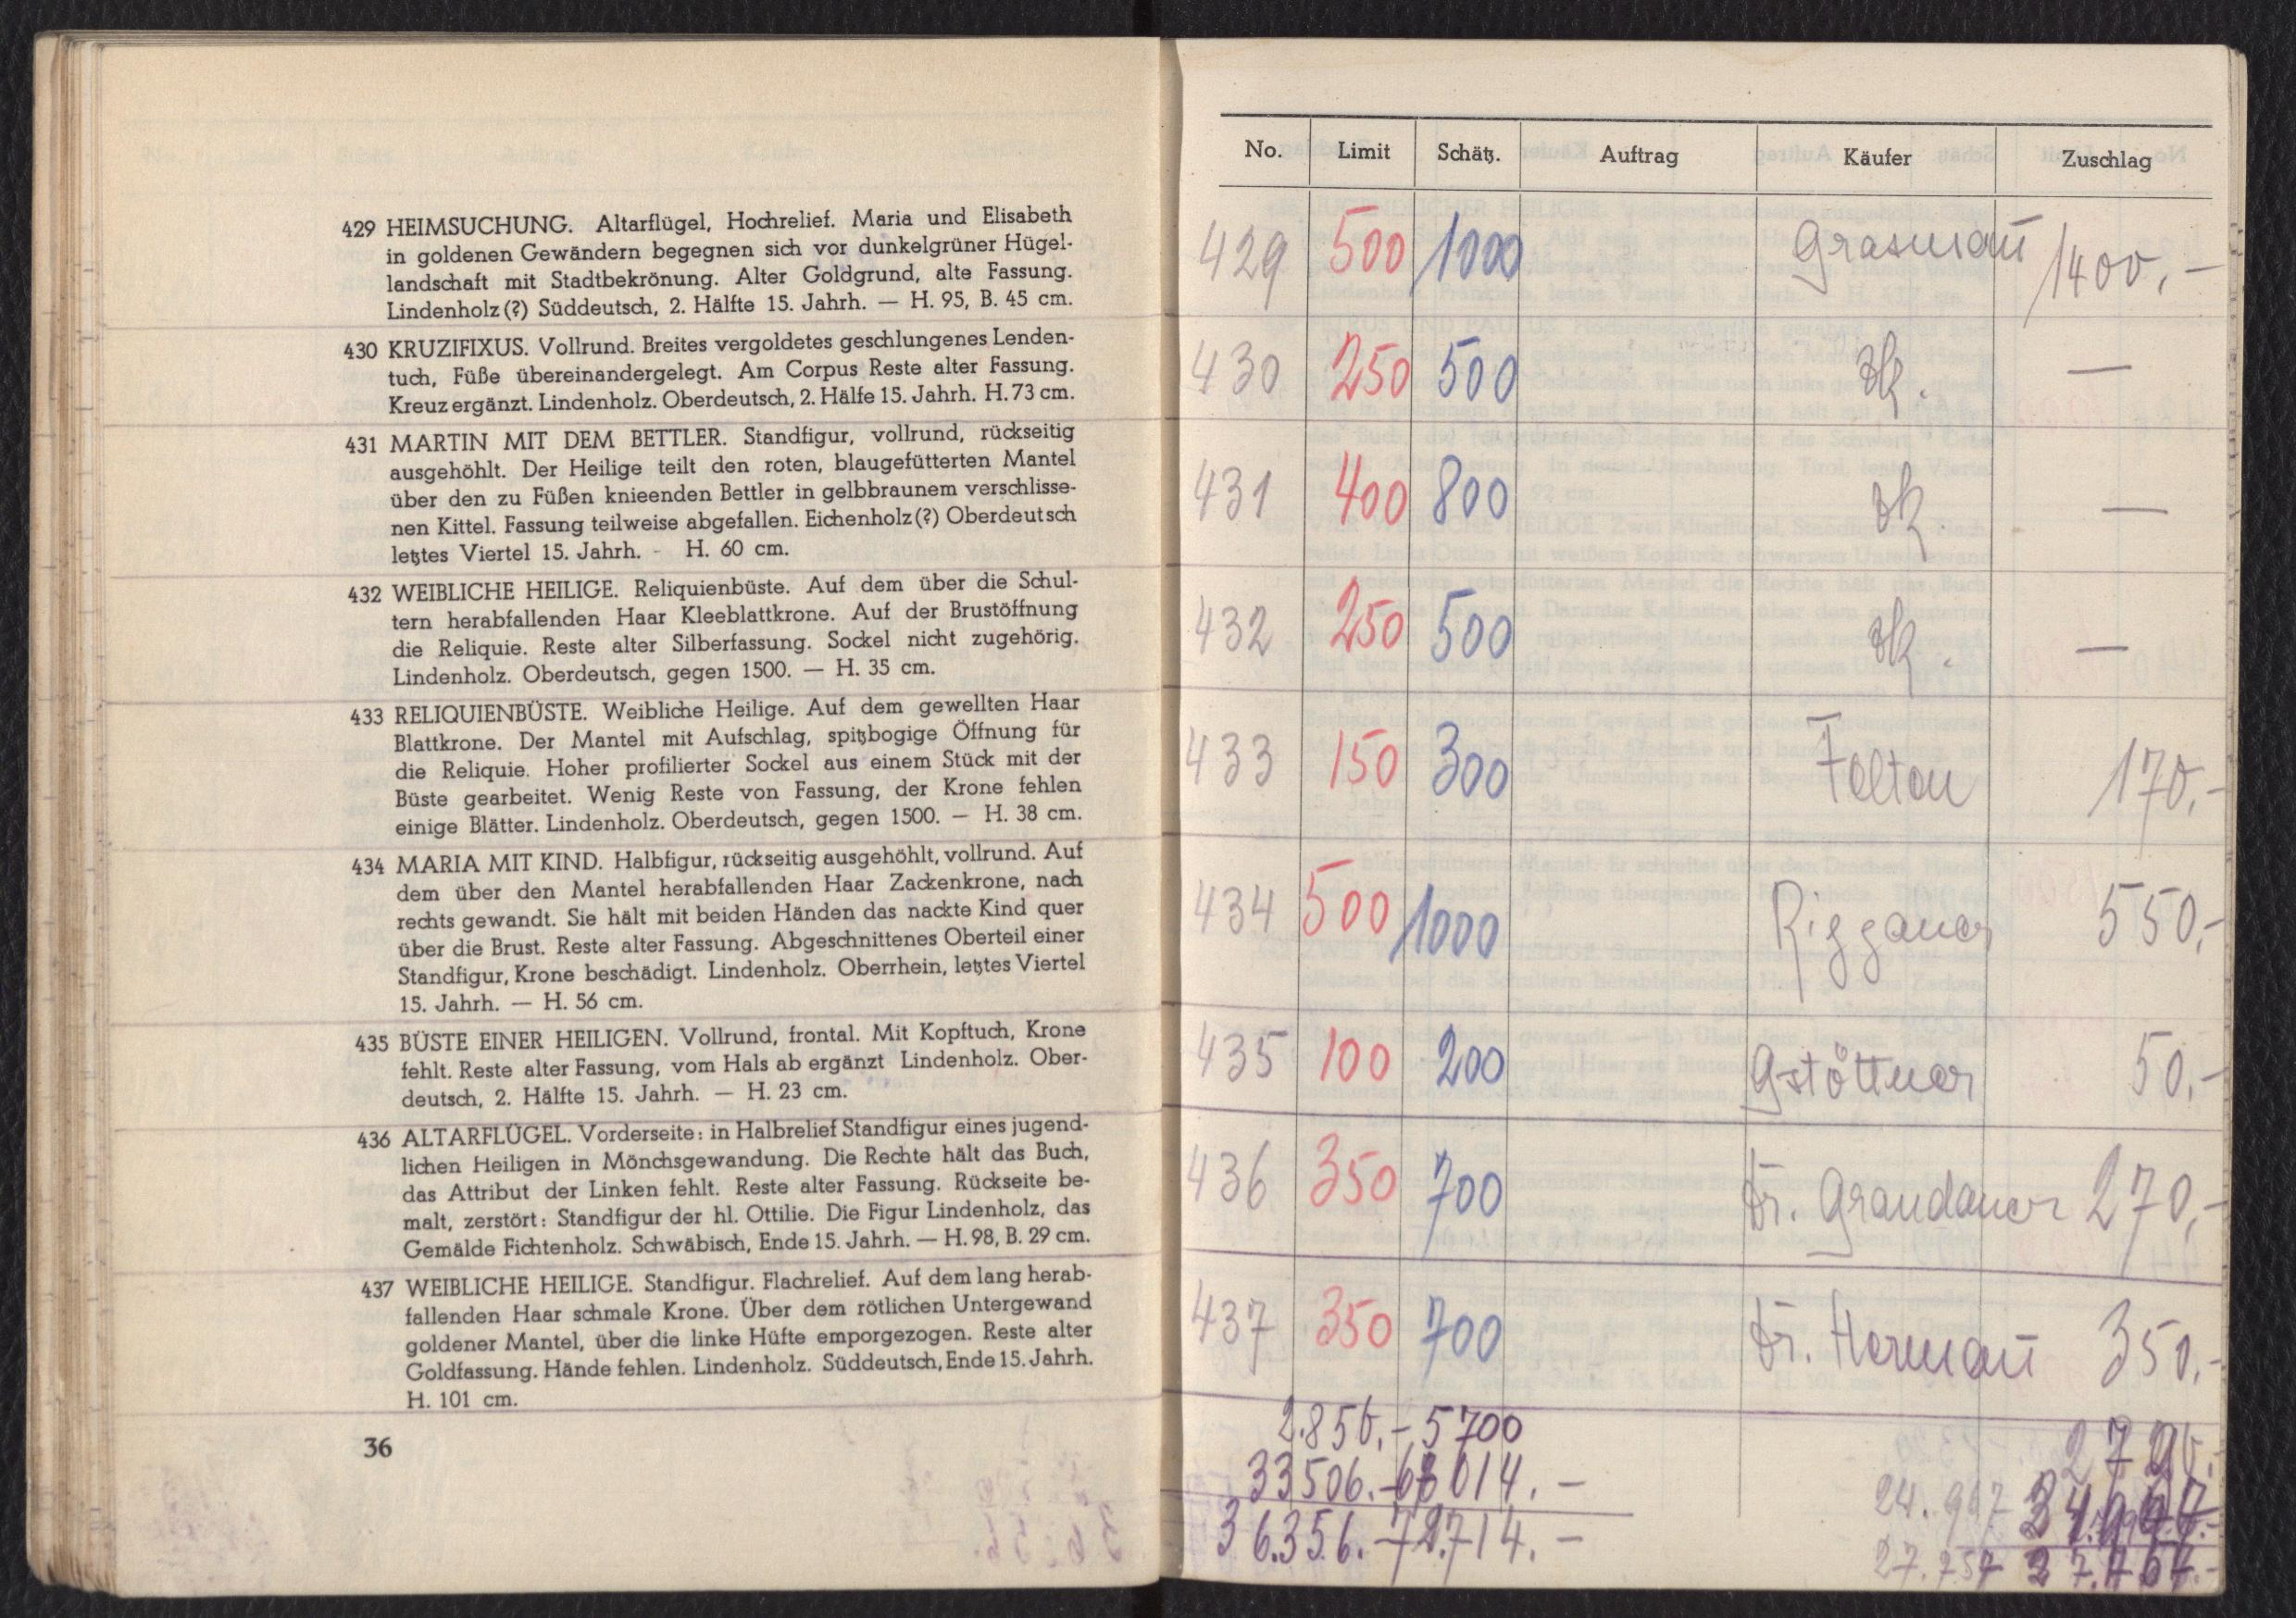 429 HEIMSUCHUNG. Altarflügel, Hochrelief. Maria und Elisabeth
in goldenen Gewändern begegnen sich vor dunkelgrüner Hügel-
landschaft mit Stadtbekrönung. Alter Goldgrund, alte Fassung.
Lindenholz(?) Süddeutsch, 2. Hälfte 15. Jahrh. — H. 95, B. 45 cm.
430 KRUZIFIXUS. Vollrund. Breites vergoldetes geschlungenes Lenden-
tuch, Füße übereinandergelegt. Am Corpus Reste alter Fassung.
Kreuz ergänzt. Lindenholz. Oberdeutsch, 2. Hälfe 15. Jahrh. H. 73 cm.
431 MARTIN MIT DEM BETTLER. Standfigur, vollrund, rückseitig
ausgehöhlt. Der Heilige teilt den roten, blaugefütterten Mantel
über den zu Füßen knieenden Bettler in gelbbraunem verschlisse-
nen Kittel. Fassung teilweise abgefallen. Eichenholz(?) Oberdeutsch
letztes Viertel 15. Jahrh. - H. 60 cm.
432 WEIBLICHE HEILIGE. Reliquienbüste. Auf dem über die Schul-
tern herabfallenden Haar Kleeblattkrone. Auf der Brustöffnung
die Reliquie. Reste alter Silberfassung. Sockel nicht zugehörig.
Lindenholz. Oberdeutsch, gegen 1500. — H. 35 cm.
433 RELIQUIENBÜSTE. Weibliche Heilige. Auf dem gewellten Haar
Blattkrone. Der Mantel mit Aufschlag, spitzbogige Öffnung für
die Reliquie. Hoher profilierter Sockel aus einem Stück mit der
Büste gearbeitet. Wenig Reste von Fassung, der Krone fehlen
einige Blätter. Lindenholz. Oberdeutsch, gegen 1500. — H. 38 cm.
434 MARIA MIT KIND. Halbfigur, rückseitig ausgehöhlt, vollrund. Auf
dem über den Mantel herabfallenden Haar Zackenkrone, nach
rechts gewandt. Sie hält mit beiden Händen das nackte Kind quer
über die Brust. Reste alter Fassung. Abgeschnittenes Oberteil einer
Standfigur, Krone beschädigt. Lindenholz. Oberrhein, letztes Viertel
15. Jahrh. — H. 56 cm.
435 BÜSTE EINER HEILIGEN. Vollrund, frontal. Mit Kopftuch, Krone
fehlt. Reste alter Fassung, vom Hals ab ergänzt Lindenholz. Ober-
deutsch, 2. Hälfte 15. Jahrh. — H. 23 cm.
436 ALTARFLÜGEL. Vorderseite: in Halbrelief Standfigur eines jugend-
lichen Heiligen in Mönchsgewandung. Die Rechte hält das Buch,
das Attribut der Linken fehlt. Reste alter Fassung. Rückseite be-
malt, zerstört: Standfigur der hl. Ottilie. Die Figur Lindenholz, das
Gemälde Fichtenholz. Schwäbisch, Ende 15. Jahrh. — H. 98, B. 29 cm.
437 WEIBLICHE HEILIGE. Standfigur. Flachrelief. Auf dem lang herab-
fallenden Haar schmale Krone. Über dem rötlichen Untergewand
goldener Mantel, über die linke Hüfte emporgezogen. Reste alter
Goldfassung. Hände fehlen. Lindenholz. Süddeutsch, Ende 15. Jahrh.
H. 101 cm.
36
No. Limit Schätz. Auftrag Käufer Zuschlag
429 500 1000 Grasmañ 1400,-
430 250 500 —
431 400 800 —
432 250 500 —
433 150 300 Felton 170,-
434 500 1000 Riggauer 550,-
435 100 200 Gstöttner 50,-
436 350 700 Dr. Grandauer 270,-
437 350 700 Dr. Hermañ 350,-
2.850,- 5700 2790,-
33506.- 014.- 24.967
36.356.- 72.714.- 27.757 27.757.-